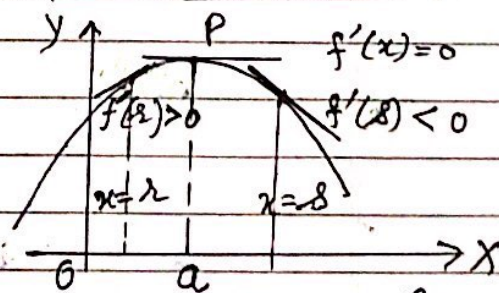 Y P f'(x)=0
f'(r)>0 f'(s)<0
x=r x=s
O a X